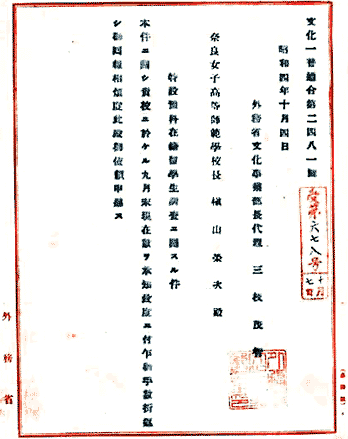 文化一普通合第二四八一號
昭和四年十月四日
外務省文化事業部長代理 三枝茂智
奈良女子高等師範學校長 槇山榮次殿
特設豫科在籍留學生調査ニ關スル件
本件ニ關シ貴校ニ於ケル九月末現在數ヲ承知致度ニ付乍御手數折返
シ御囘報相煩度此段御依頼申進ス
受第六七八号
十月七日
外務省